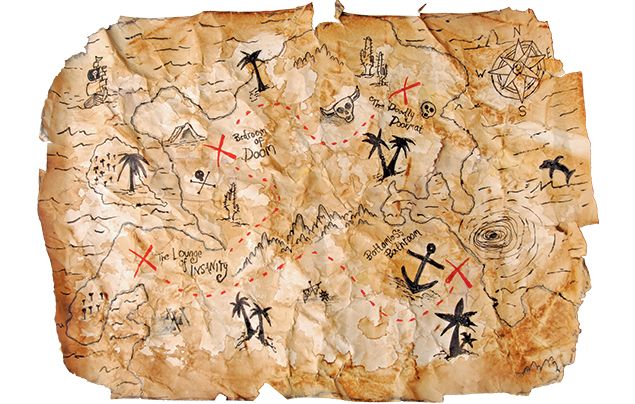 N
W
S
The Deadly
Doormat
Bedroom
of
Doom
The Lounge
of
Insanity
Bottomless
Bathroom